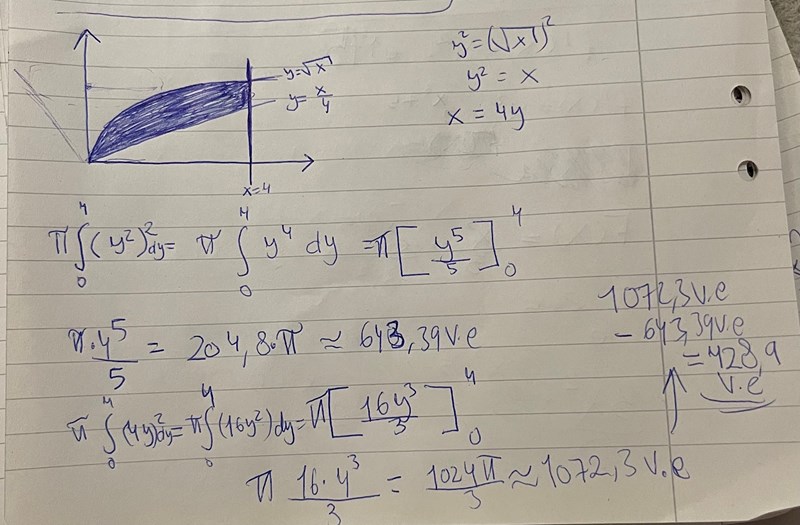 y=√x
y=x/4
x=4
y²=(√x)²
y² = x
x = 4y
π∫₀⁴(y²)²dy= π ∫₀⁴ y⁴ dy =π[y⁵/5]₀⁴
π·4⁵/5 = 204,8·π ≈ 643,39v.e
π∫₀⁴(4y)²dy=π∫₀⁴(16y²)dy=π[16y³/3]₀⁴
π 16·4³/3 = 1024π/3 ≈1072,3 v.e
1072,3v.e
- 643,39v.e
= 428,9
v.e